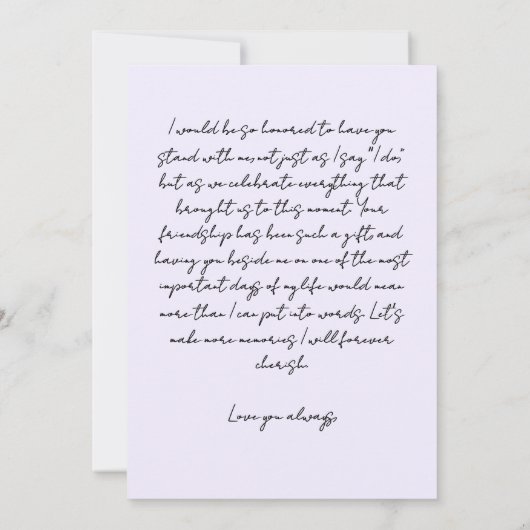 I would be so honored to have you
stand with me, not just as I say "I do,"
but as we celebrate everything that
brought us to this moment. Your
friendship has been such a gift, and
having you beside me on one of the most
important days of my life would mean
more than I can put into words. Let's
make more memories I will forever
cherish.
Love you always,